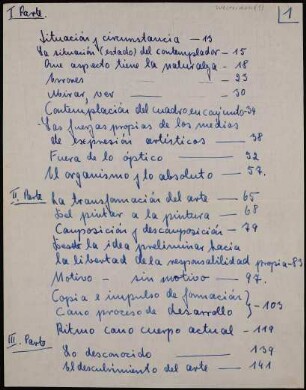 I Parte.
1
Situación y circunstancia — 13
La situación (estado) del contemplador — 15
Que aspecto tiene la naturaleza — 18
Errores — 23
Mirar, ver — 30
Contemplación del cuadro encajundo-34
Las fuerzas propias de los medios
de expresión artísticos — 38
Fuera de lo óptico — 52
El organismo y lo absoluto — 57.
II. Parte
La transformación del arte — 65
Del pintar a la pintura — 68
Composición y descomposición — 79
Desde la idea preliminar hacia
la libertad de la responsabilidad propia-83
Motivo — sin motivo — 97.
Copia e impulso de formación
Como proceso de desarrollo } — 103
Ritmo como cuerpo actual — 119
III. Parte
Lo desconocido — 139
El descubrimiento del arte — 141